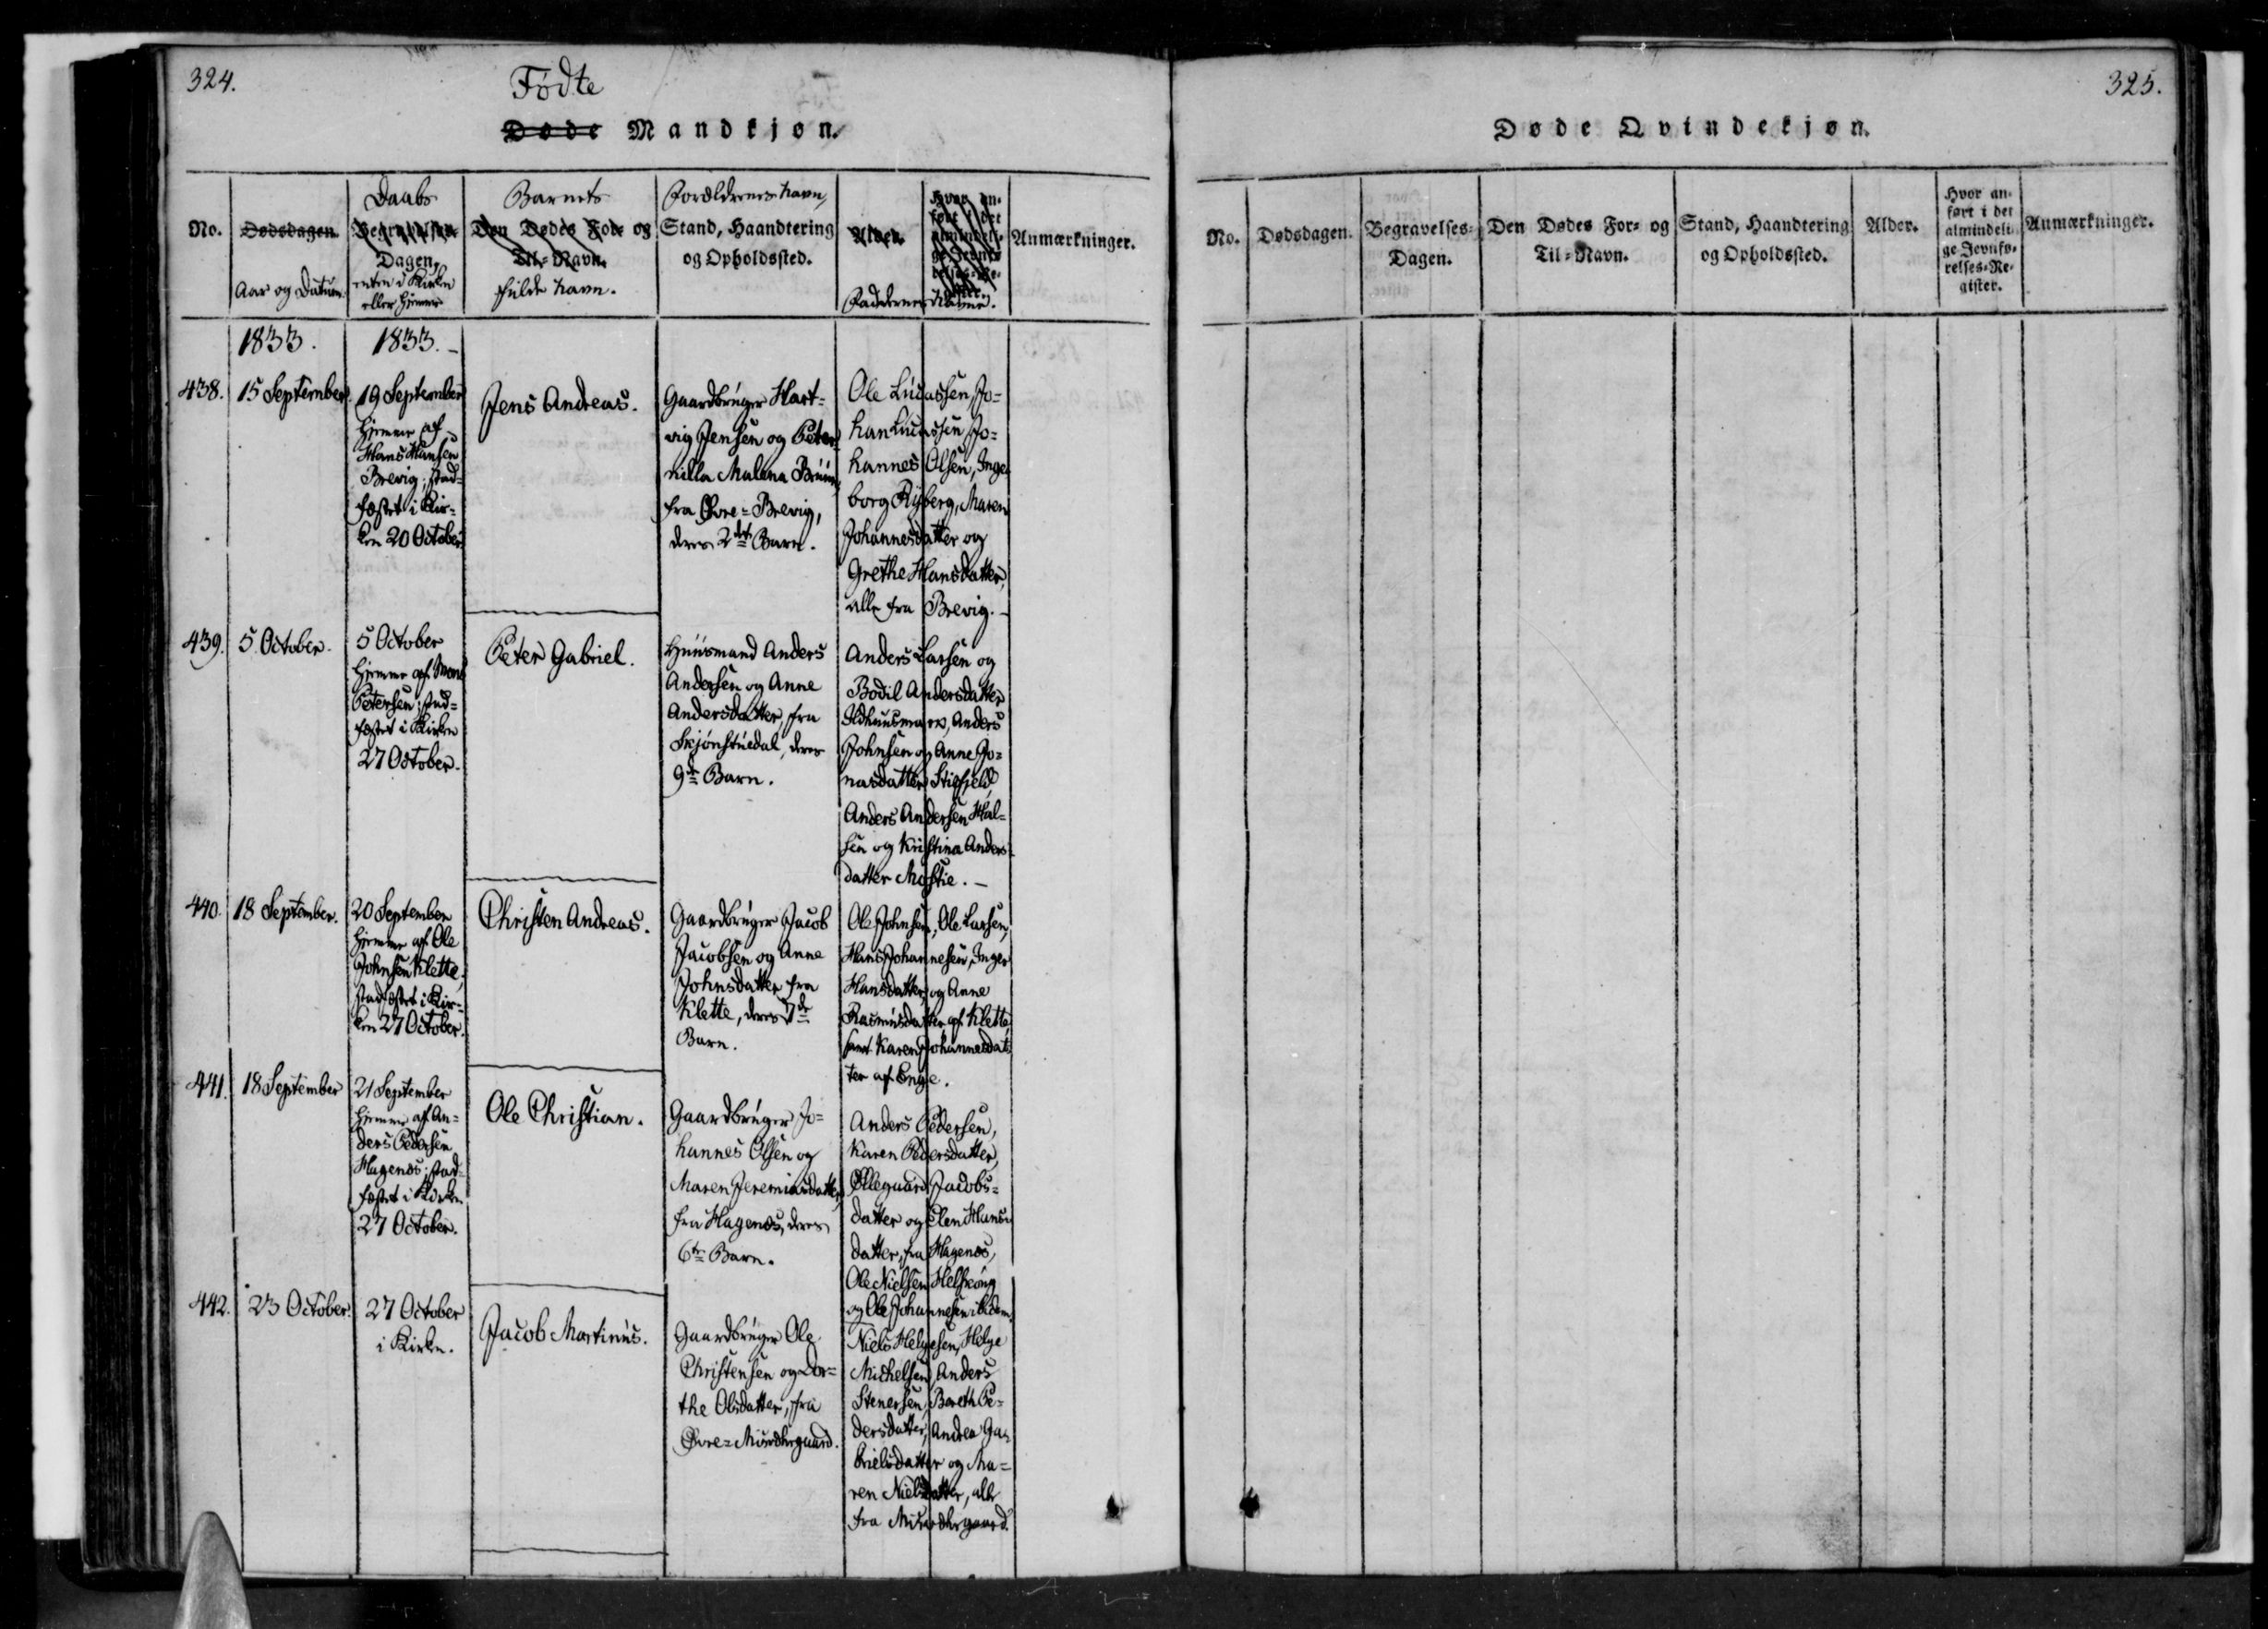 324.
Födte
Døde Mandkjøn.
No.
Dødsdagen.
Aar og Datum.
Daabs
Begravelses-
Dagen,
enten i Kirken
eller hjemme
Barnets
Den Dødes For- og
Til-Navn.
fulde Navn.
Forældrenes Navn,
Stand, Haandtering
og Opholdssted.
Alder.
Hvor an-
ført i det
almindeli-
ge Jevnfø-
relses-Re-
gister.
Faddernes Navne.
Anmærkninger.
1833.
1833.
438.
15 September.
19 September
hjemme af
Hans Hansen
Brevig; stad-
fæstet i Kir-
ken 20 October
Jens Andreas.
Gaardbruger Hart-
vig Jensen og Peter-
nilla Malena
fra Øvre-Brevig,
deres 2det Barn.
Ole Lucassen, Jo-
han Lucassen, Jo-
hannes Olsen, Inge-
borg Ryberg, Maren
Johannesdatter og
Grethe Hansdatter,
alle fra Brevig.
439.
5 October.
5 October
hjemme af Mons
Petersen; stad-
fæstet i Kirken
27 October.
Peter Gabriel.
Huusmand Anders
Andersen og Anne
Andersdatter, fra
deres
9de Barn.
Anders Larsen og
Bodil Andersdatter
Anders
Johnsen og Anne Jo-
nasdatter
Anders Andersen Hal-
sen og Kristina Anders-
datter
440.
18 September.
20 September
hjemme af Ole
Johnsen Klette;
stadfæstet i Kir-
ken 27 October.
Christen Andreas.
Gaardbruger Jacob
Jacobsen og Anne
Johnsdatter fra
Klette, deres 7de
Barn.
Ole Johnsen, Ole Larsen,
Hans Johannesen, Inger
Hansdatter og Anne
Rasmusdatter af Klette
samt Karen Johannesdat-
ter af Enge.
441.
18 September
21 September
hjemme af An-
ders Pedersen
Hagenæs; stad-
fæstet i Kirken
27 October.
Ole Christian.
Gaardbruger Jo-
hannes Olsen og
Maren Jeremiasdatter,
fra Hagenæs, deres
6te Barn.
Anders Pedersen,
Karen Pedersdatter,
Øllegaard Jacobs-
datter og Elen Hans-
datter, fra Hagenæs,
Ole Nielsen
og Ole Johannesen ibidem.
442.
23 October.
27 October
i Kirken.
Jacob Martinus.
Gaardbruger Ole
Christensen og Dor-
the Olsdatter, fra
Øvre-
Niels Helgesen, Helge
Michelsen, Anders
Stenersen, Bereth Pe-
dersdatter, Andrea Ga-
brielsdatter og Ma-
ren Nielsdatter, alle
fra
325.
Døde Qvindekjøn.
No.
Dødsdagen.
Begravelses-
Dagen.
Den Dødes For- og
Til-Navn.
Stand, Haandtering
og Opholdssted.
Alder.
Hvor an-
ført i det
almindeli-
ge Jevnfø-
relses-Re-
gister.
Anmærkninger.